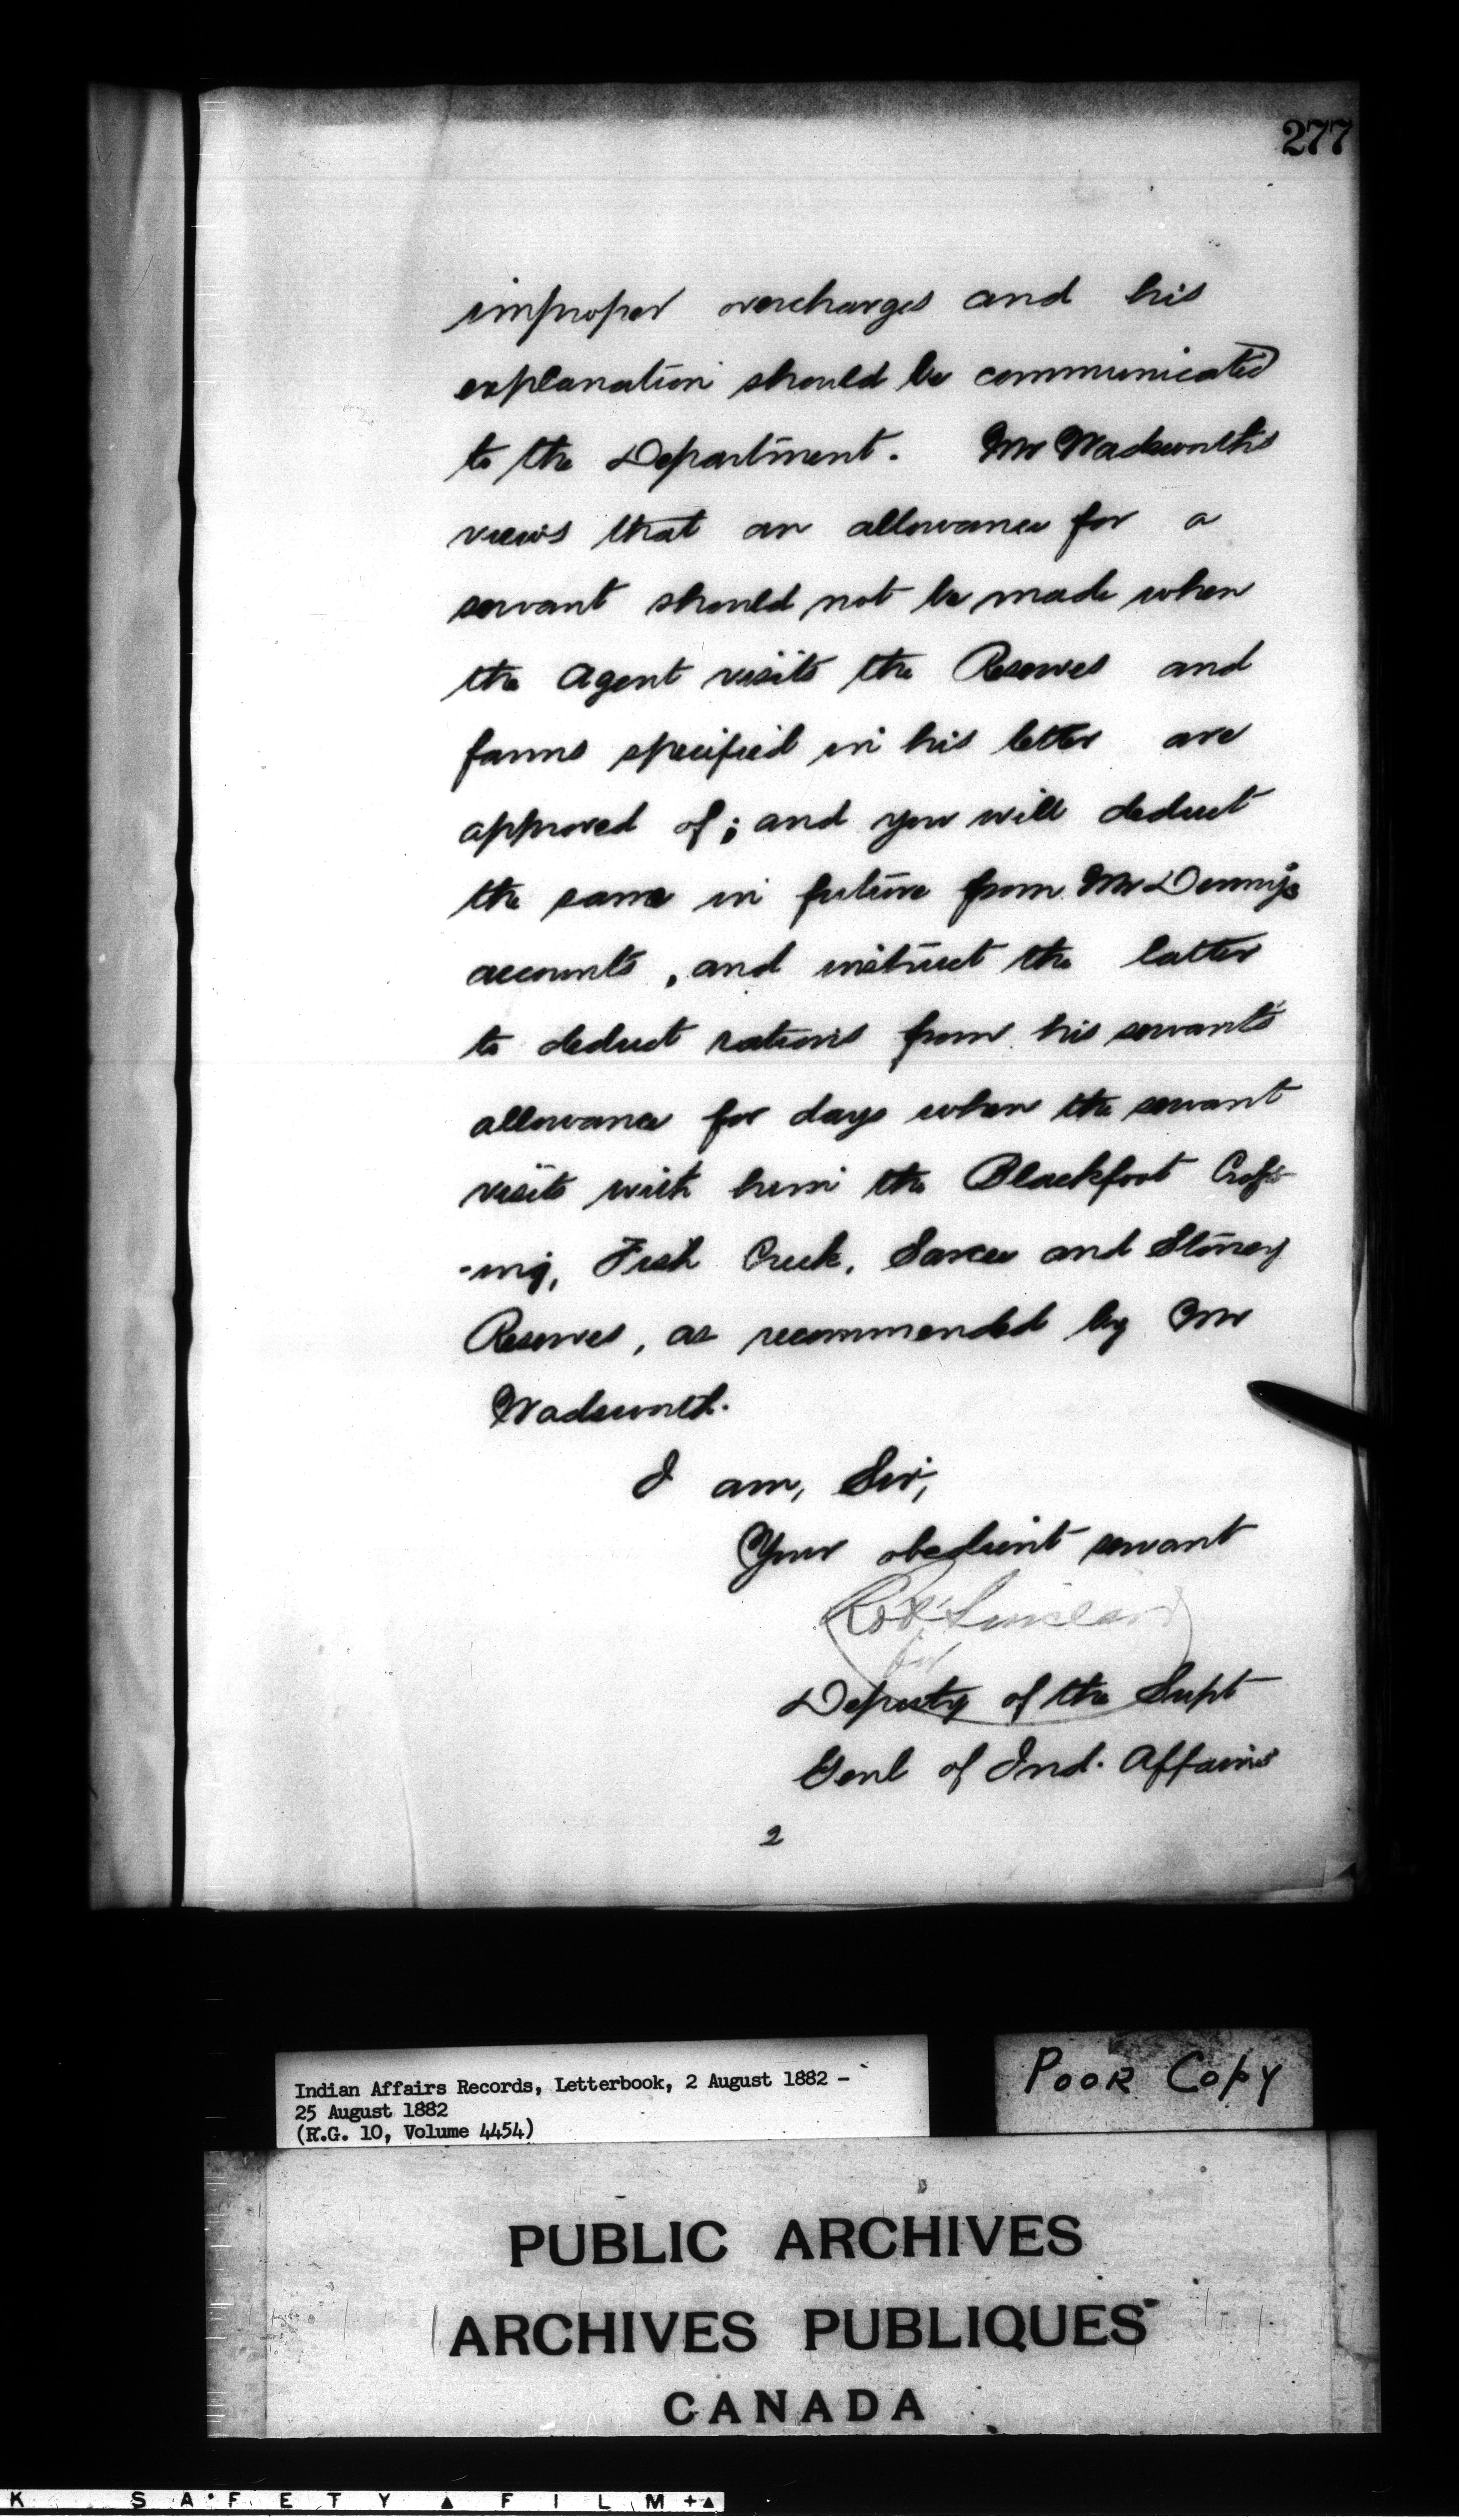 277
improper overcharges and his
explanation should be communicated
to the Department. Mr Wadsworth's
views that an allowance for a
servant should not be made when
the Agent visits the Reserves and
farms specified in his letter are
approved of; and you will deduct
the same in future from Mr Denny's
accounts, and instruct the latter
to deduct rations from his servants
allowance for days when the servant
visits with him the Blackfoot Cross
-ing, Fish Creek, Sarcee and Stoney
Reserves, as recommended by Mr
Wadsworth.
I am, Sir,
Your obedient servant
Robt Sinclair
for
Deputy of the Supt
Genl of Ind. Affairs
2
Indian Affairs Records, Letterbook, 2 August 1882 -
25 August 1882
(R.G. 10, Volume 4454)
Poor Copy
PUBLIC ARCHIVES
ARCHIVES PUBLIQUES
CANADA
K SAFETY ▲ FILM +▲